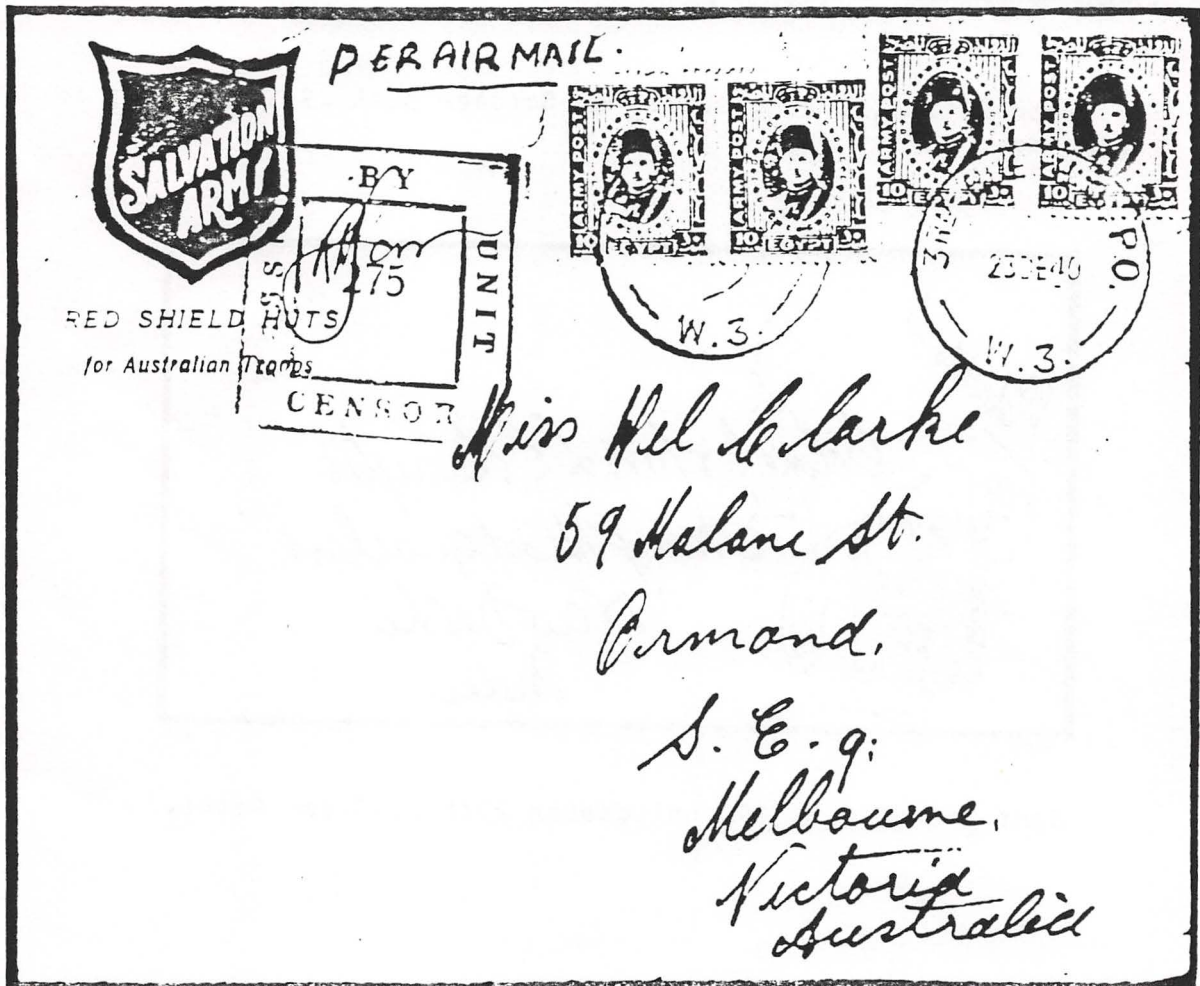 PER AIR MAIL.
SALVATION
ARMY
RED SHIELD HUTS
for Australian Troops
BY
UNIT
CENSOR
275
ARMY POST
10 EGYPT
ARMY POST
10 EGYPT
ARMY POST
10 EGYPT
ARMY POST
10 EGYPT
W.3.
23 DE 40
P.O.
W.3.
Miss Hel Clarke
59 Malane St.
Ormond.
S. E. 9.
Melbourne.
Victoria
Australia